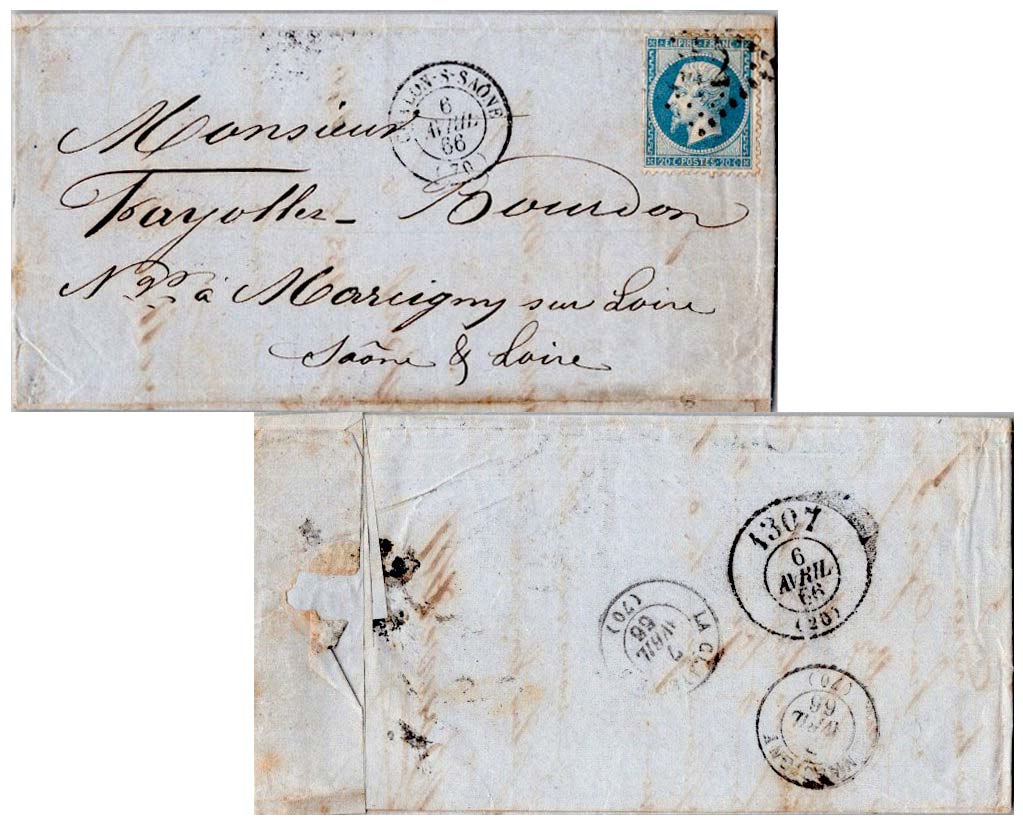 CHALON-S-SAÔNE
6
AVRIL
66
(70)
EMPIRE FRANC
20 C POSTES 20 C
Monsieur
Fayolles-Bourdon
Ngt à Marcigny sur Loire
Saône & Loire
1307
6
AVRIL
66
(20)
LA
7
AVRIL
66
(70)
AVRIL
66
(70)